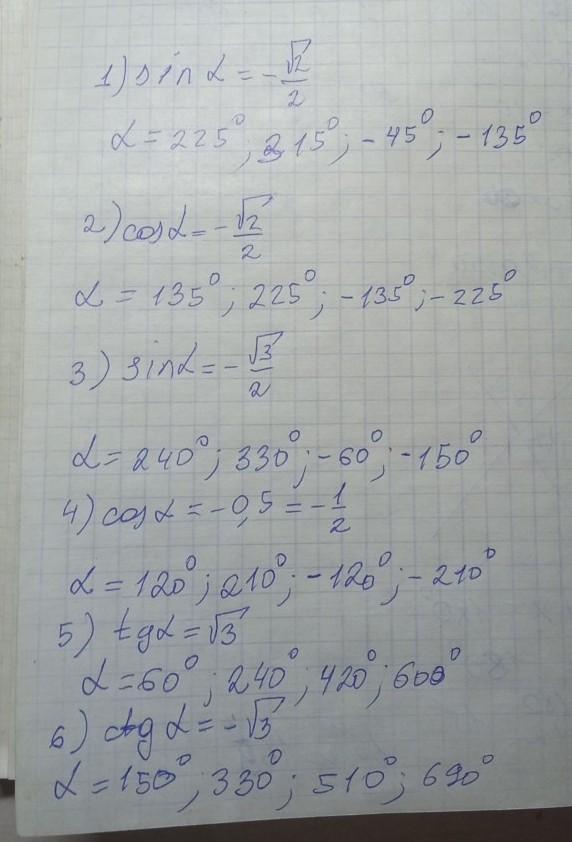 1) sin α = -√2/2
α = 225°; 315°; -45°; -135°
2) cos α = -√2/2
α = 135°; 225°; -135°; -225°
3) sin α = -√3/2
α = 240°; 330°; -60°; -150°
4) cos α = -0,5 = -1/2
α = 120°; 210°; -120°; -210°
5) tg α = √3
α = 60°; 240°; 420°; 600°
6) ctg α = -√3
α = 150°; 330°; 510°; 690°